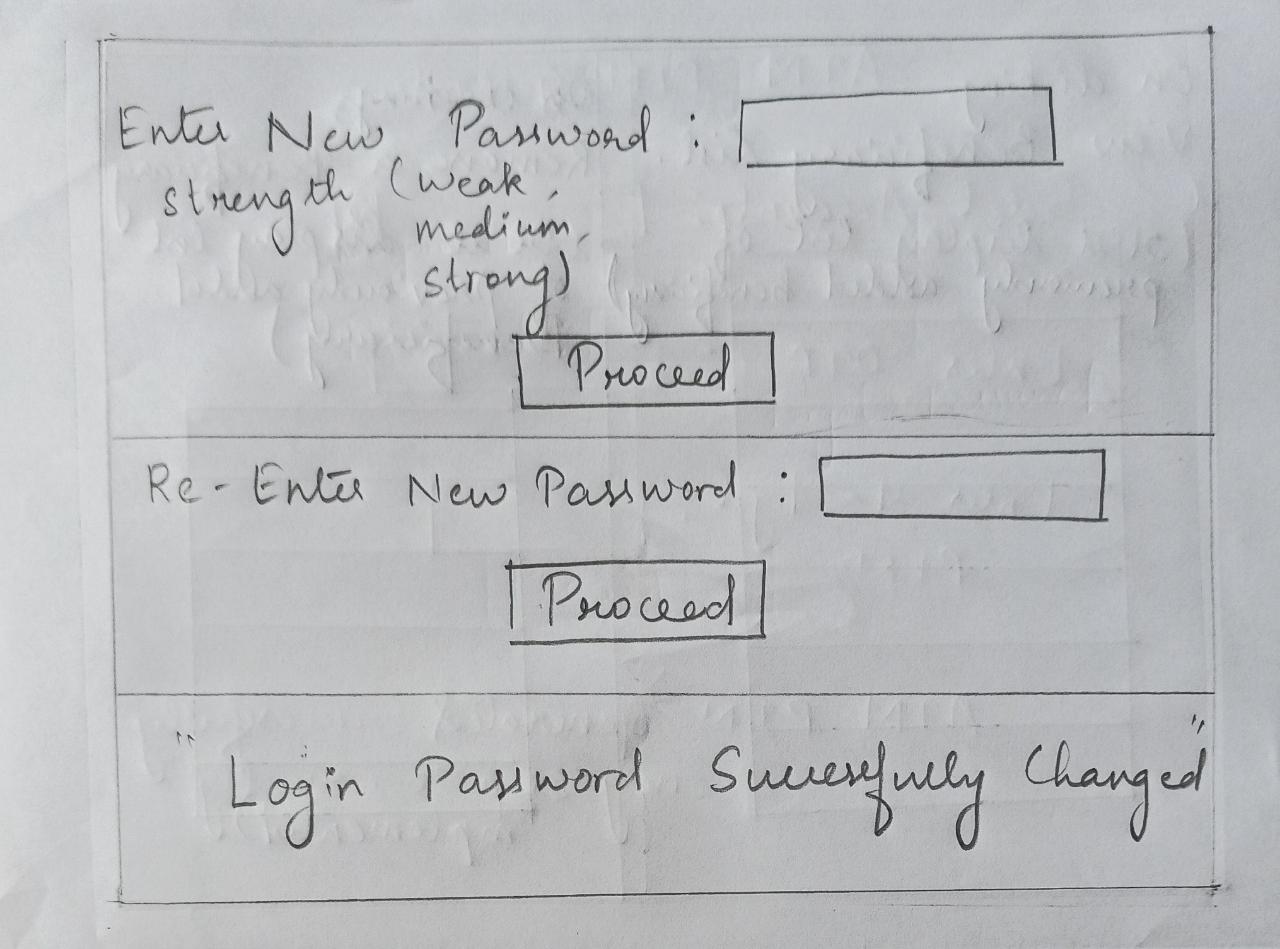 Enter New Password :
strength (weak,
medium,
strong)
Proceed
Re-Enter New Password :
Proceed
"Login Password Successfully Changed"